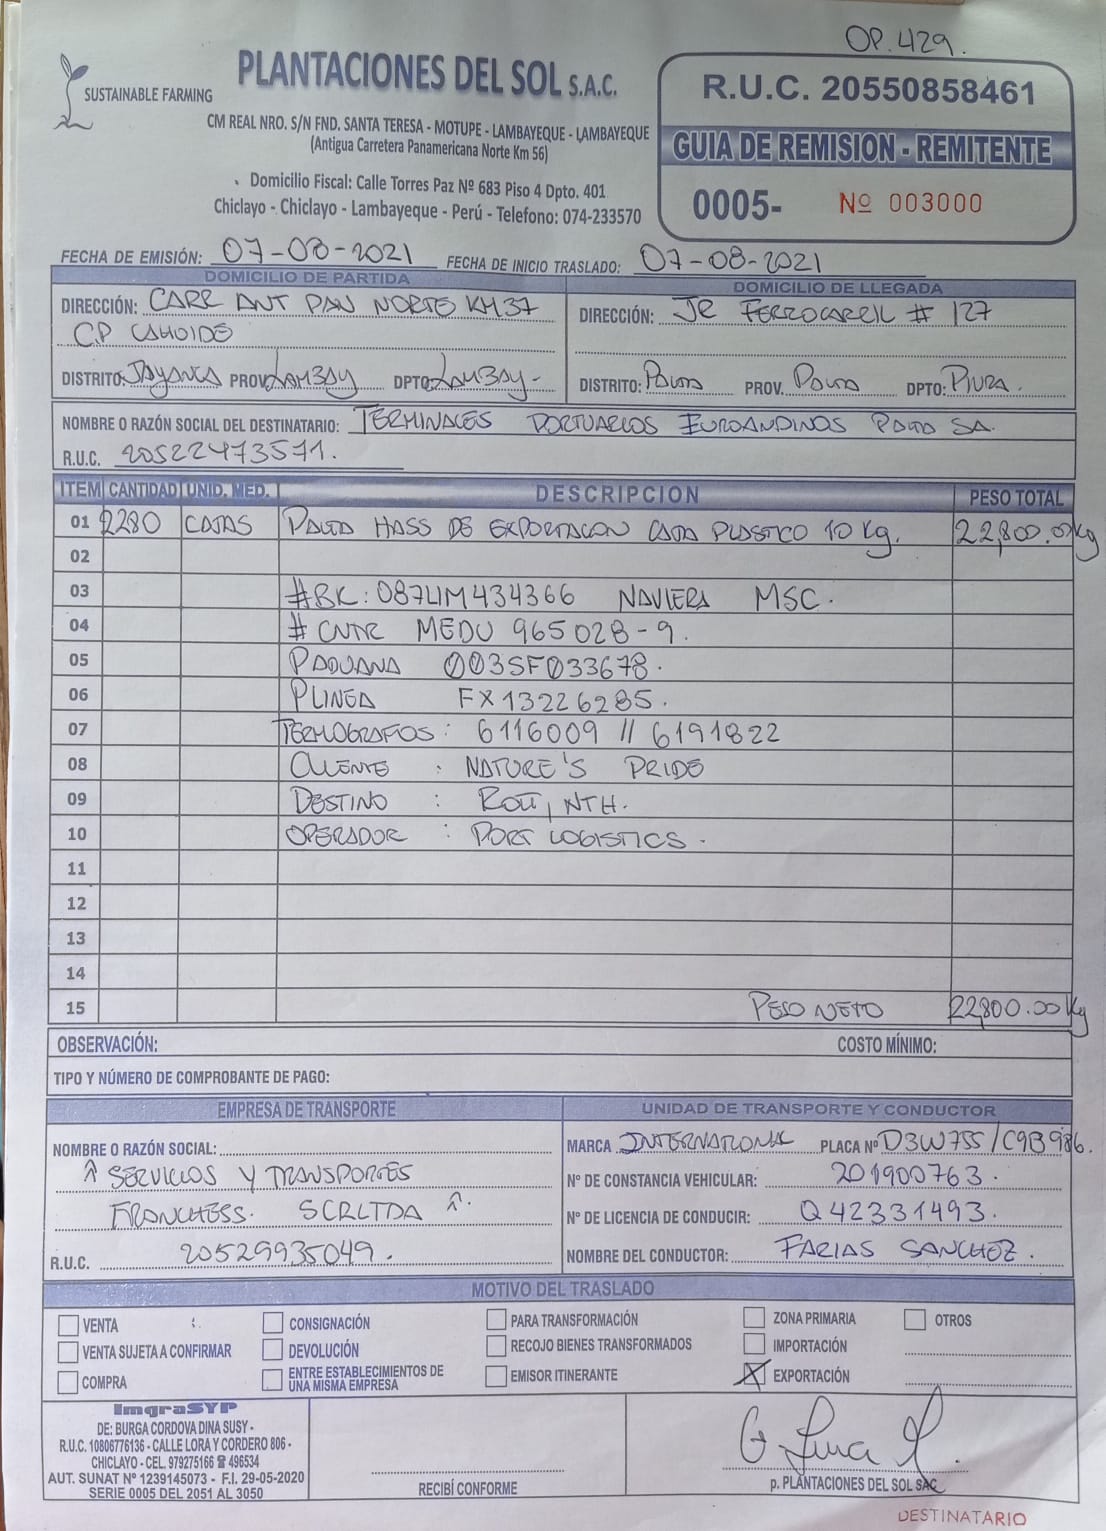 OP. 429.
SUSTAINABLE FARMING
PLANTACIONES DEL SOL S.A.C.
CM REAL NRO. S/N FND. SANTA TERESA - MOTUPE - LAMBAYEQUE - LAMBAYEQUE
(Antigua Carretera Panamericana Norte Km 56)
Domicilio Fiscal: Calle Torres Paz Nº 683 Piso 4 Dpto. 401
Chiclayo - Chiclayo - Lambayeque - Perú - Telefono: 074-233570
R.U.C. 20550858461
GUIA DE REMISION - REMITENTE
0005- Nº 003000
FECHA DE EMISIÓN: 07-08-2021 FECHA DE INICIO TRASLADO: 07-08-2021
DOMICILIO DE PARTIDA
DIRECCIÓN: CARR ANT PAN NORTE KM 37
C.P CAHUIDE
DISTRITO: JAYANCA PROV. LAMBAY DPTO: LAMBAY-
DOMICILIO DE LLEGADA
DIRECCIÓN: JR FERROCARRIL # 127
DISTRITO: PAITA PROV. PAITA DPTO: PIURA.
NOMBRE O RAZÓN SOCIAL DEL DESTINATARIO: TERMINALES PORTUARIOS EUROANDINOS PAITA SA.
R.U.C. 20522473571.
ITEM CANTIDAD UNID. MED. DESCRIPCION PESO TOTAL
01 2280 CAJAS PALTA HASS DE EXPORTACION CAJA PLASTICO 10 Kg. 22,800.00Kg
02
03 #BK: 087LIM434366 NAVIERA MSC.
04 # CNTR MEDU 965028-9.
05 P.ADUANA 003SF033678.
06 P.LINEA FX13226285.
07 TERMOGRAFOS: 6116009 // 6191822
08 CLIENTE : NATURE'S PRIDE
09 DESTINO : ROTT, NTH.
10 OPERADOR : PORT LOGISTICS.
11
12
13
14
15 PESO NETO 22,800.00Kg
OBSERVACIÓN: COSTO MÍNIMO:
TIPO Y NÚMERO DE COMPROBANTE DE PAGO:
EMPRESA DE TRANSPORTE
NOMBRE O RAZÓN SOCIAL:
SERVICIOS Y TRANSPORTES
FRANCHESS. SCRLTDA
R.U.C. 20529935049.
UNIDAD DE TRANSPORTE Y CONDUCTOR
MARCA INTERNATIONAL PLACA Nº D3W755/C9B986.
Nº DE CONSTANCIA VEHICULAR: 201900763.
Nº DE LICENCIA DE CONDUCIR: Q42331493.
NOMBRE DEL CONDUCTOR: FARIAS SANCHEZ.
MOTIVO DEL TRASLADO
VENTA CONSIGNACIÓN PARA TRANSFORMACIÓN ZONA PRIMARIA OTROS
VENTA SUJETA A CONFIRMAR DEVOLUCIÓN RECOJO BIENES TRANSFORMADOS IMPORTACIÓN
COMPRA ENTRE ESTABLECIMIENTOS DE UNA MISMA EMPRESA EMISOR ITINERANTE X EXPORTACIÓN
ImgraSYP
DE: BURGA CORDOVA DINA SUSY -
R.U.C. 10806776136 - CALLE LORA Y CORDERO 806 -
CHICLAYO - CEL. 979275166 ☎ 496534
AUT. SUNAT Nº 1239145073 - F.I. 29-05-2020
SERIE 0005 DEL 2051 AL 3050
RECIBÍ CONFORME
p. PLANTACIONES DEL SOL SAC
DESTINATARIO